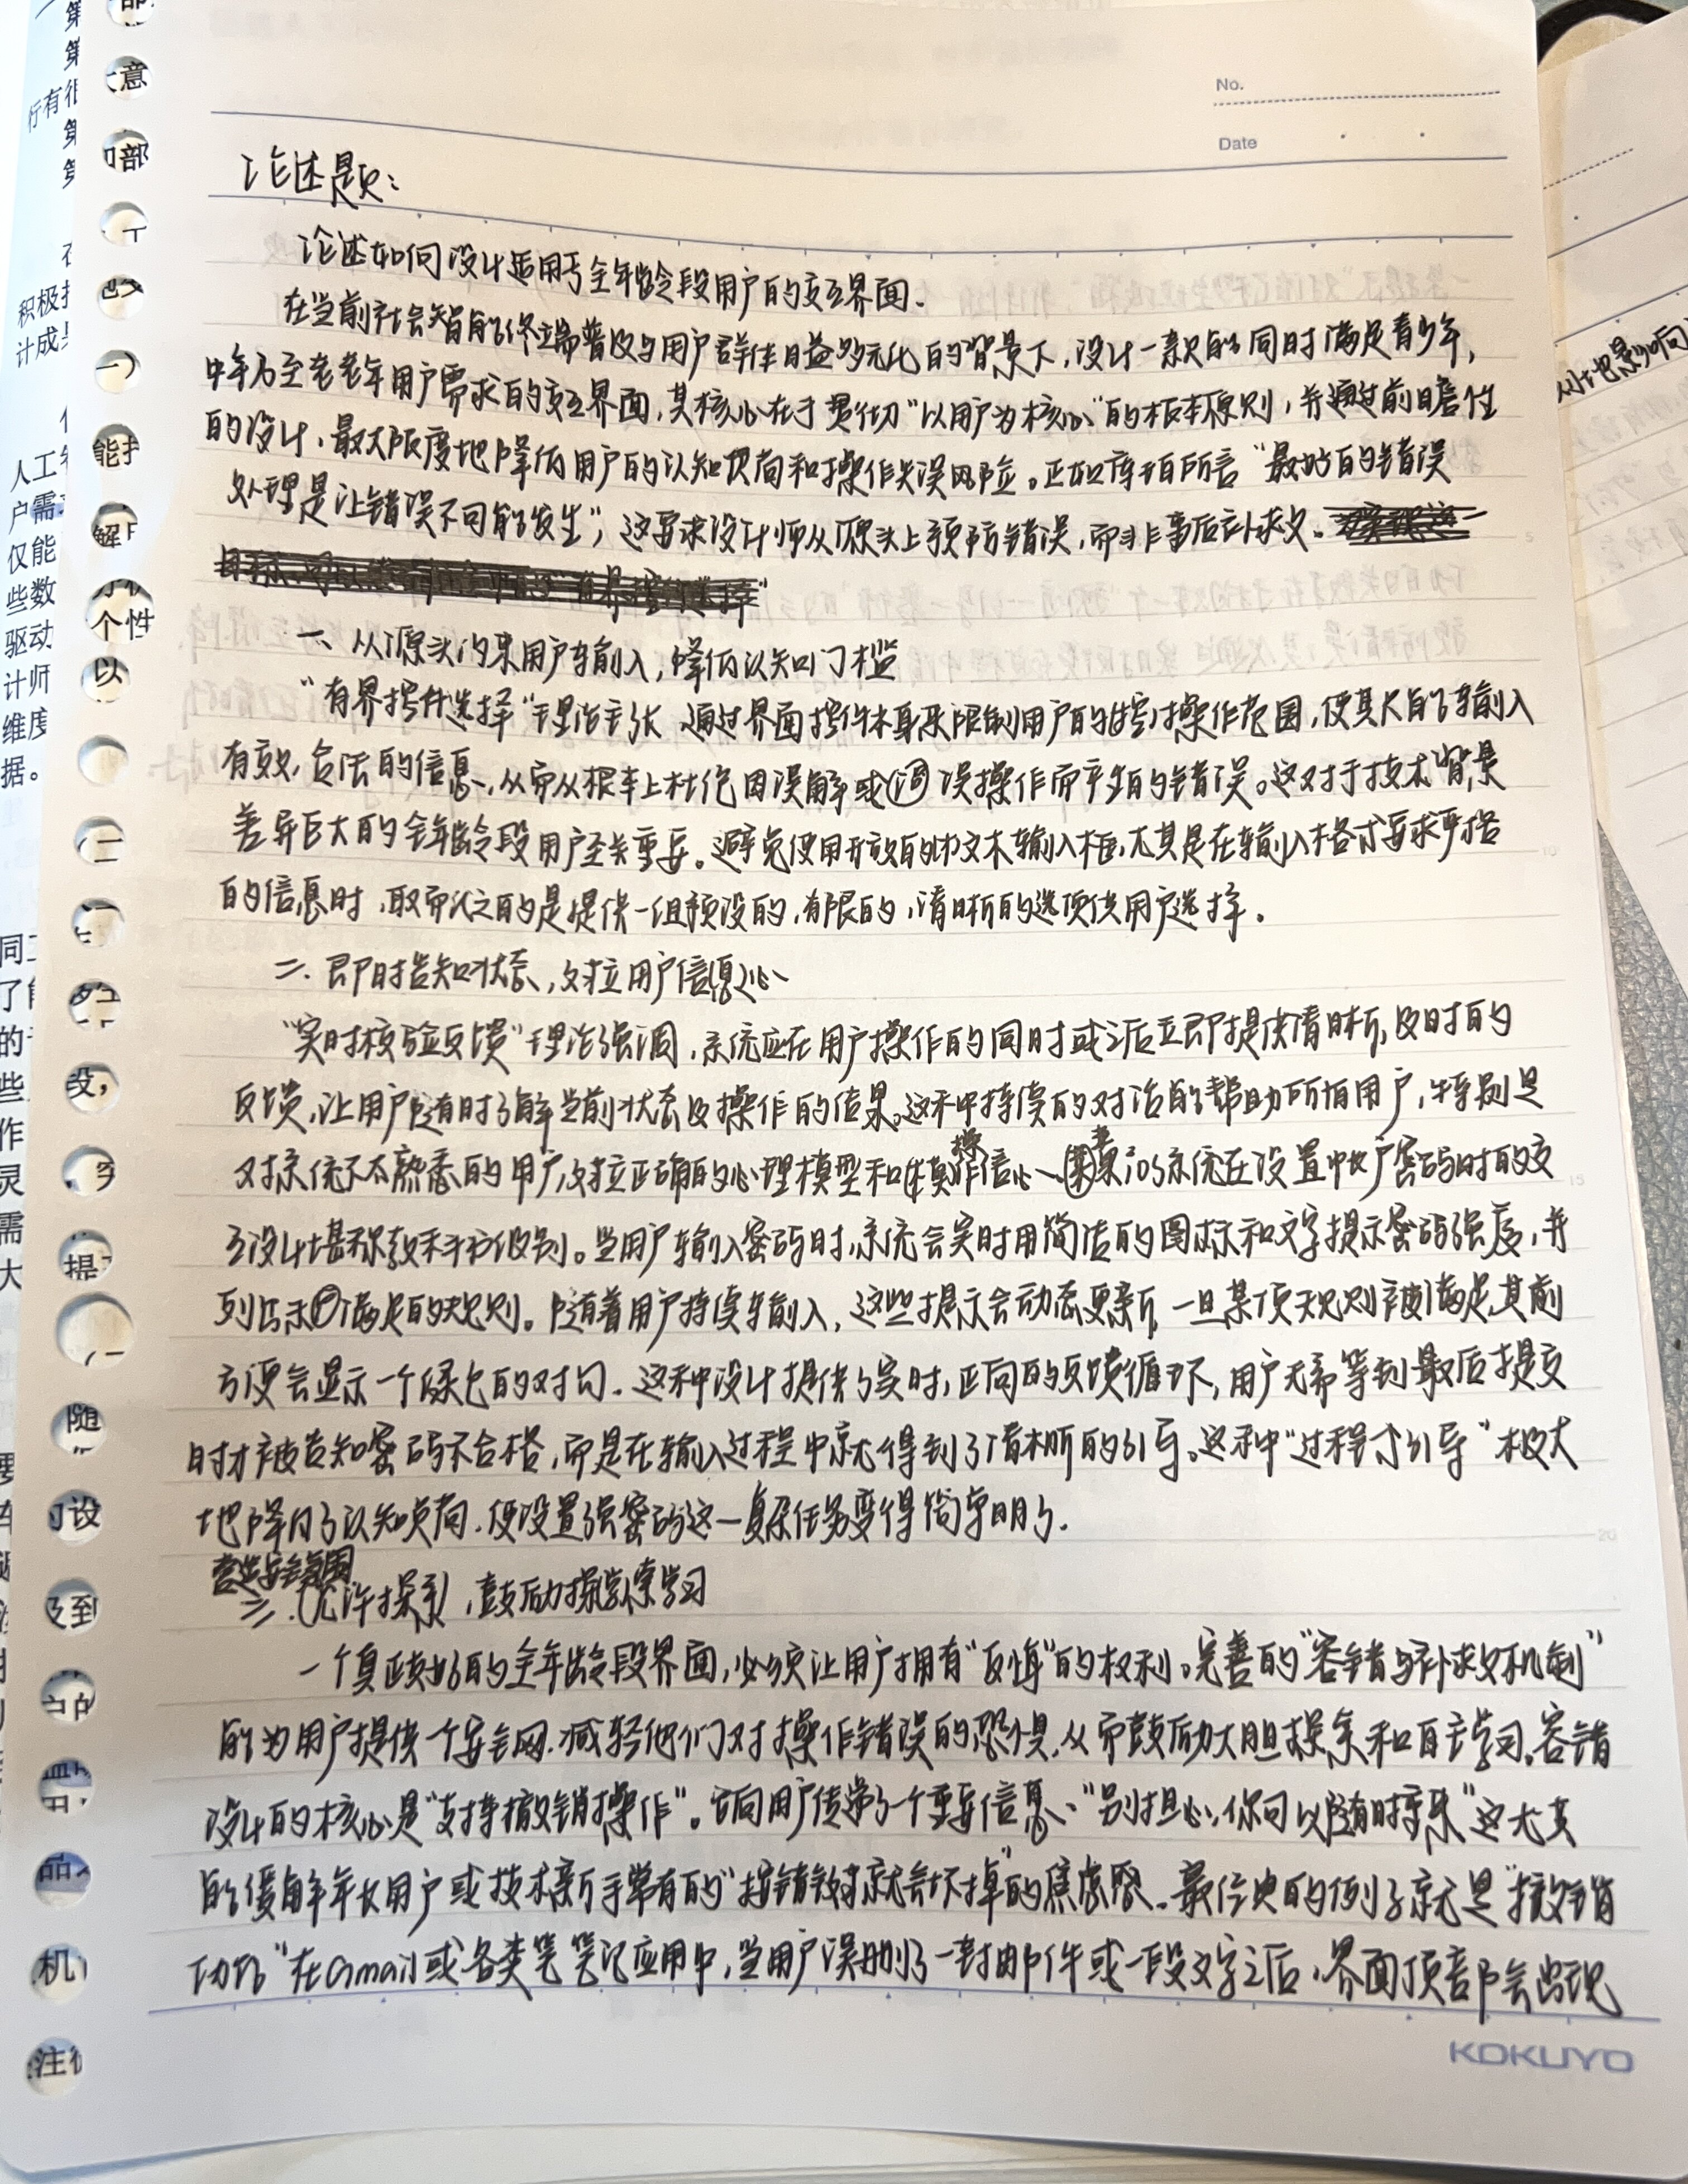 No.
Date
论述题:
论述如何设计适用于全年龄段用户的交互界面.
在当前社会智能终端普及与用户群体日益多元化的背景下,设计一款能同时满足青少年,
中年乃至老老年用户需求的交互界面,其核心在于贯彻“以用户为核心”的根本原则,并通过前瞻性
的设计,最大限度地降低用户的认知负荷和操作失误风险。正如库珀所言“最好的错误
处理是让错误不可能发生”,这要求设计师从源头上预防错误,而非事后补救.
一、从源头约束用户输入,降低认知门槛
“有界控件选择”理论主张 通过界面控件本身来限制用户的操作范围,使其只能输入
有效,合法的信息,从而从根本上杜绝因误解或误操作而产生的错误。这对于技术背景
差异巨大的全年龄段用户至关重要。避免使用开放的文本输入框,尤其是在输入格式要求严格
的信息时,取而代之的是提供一组预设的,有限的,清晰的选项供用户选择.
二.即时告知状态,建立用户信心
“实时校验反馈”理论强调,系统应在用户操作的同时或之后立即提供清晰,及时的
反馈,让用户随时了解当前状态及操作的结果。这种持续的对话能帮助所有用户,特别是
对系统不太熟悉的用户,建立正确的心理模型和操作信心、苹果iOS系统在设置中账户密码时的交
互设计堪称教科书级别。当用户输入密码时,系统会实时用简洁的图标和文字提示密码强度,并
列出满足的规则。随着用户持续输入,这些提示会动态更新,一旦某项规则被满足,其前
方便会显示一个绿色的对勾.这种设计提供了实时,正向的反馈循环,用户无需等到最后提交
时才被告知密码不合格,而是在输入过程中就得到了清晰的引导。这种“过程式引导”极大
地降低了认知负荷.使设置强密码这一复杂任务变得简单明了.
营造安全氛围
三.(允许探索),鼓励探索学习
一个真正好的全年龄段界面,必须让用户拥有“反悔”的权利。完善的“容错与补救机制”
能为用户提供一个安全网.减轻他们对操作错误的恐惧,从而鼓励大胆探索和自主学习.容错
设计的核心是“支持撤销操作”。它向用户传递了一个重要信息:“别担心,你可以随时重来”这尤其
能缓解年长用户或技术新手常有的“按错键就会坏掉”的焦虑感.最经典的例子就是“撤销
功能”在Gmail或各类笔笔记应用中,当用户误删了一封邮件或一段文字之后,界面顶部会出现
KOKUYO